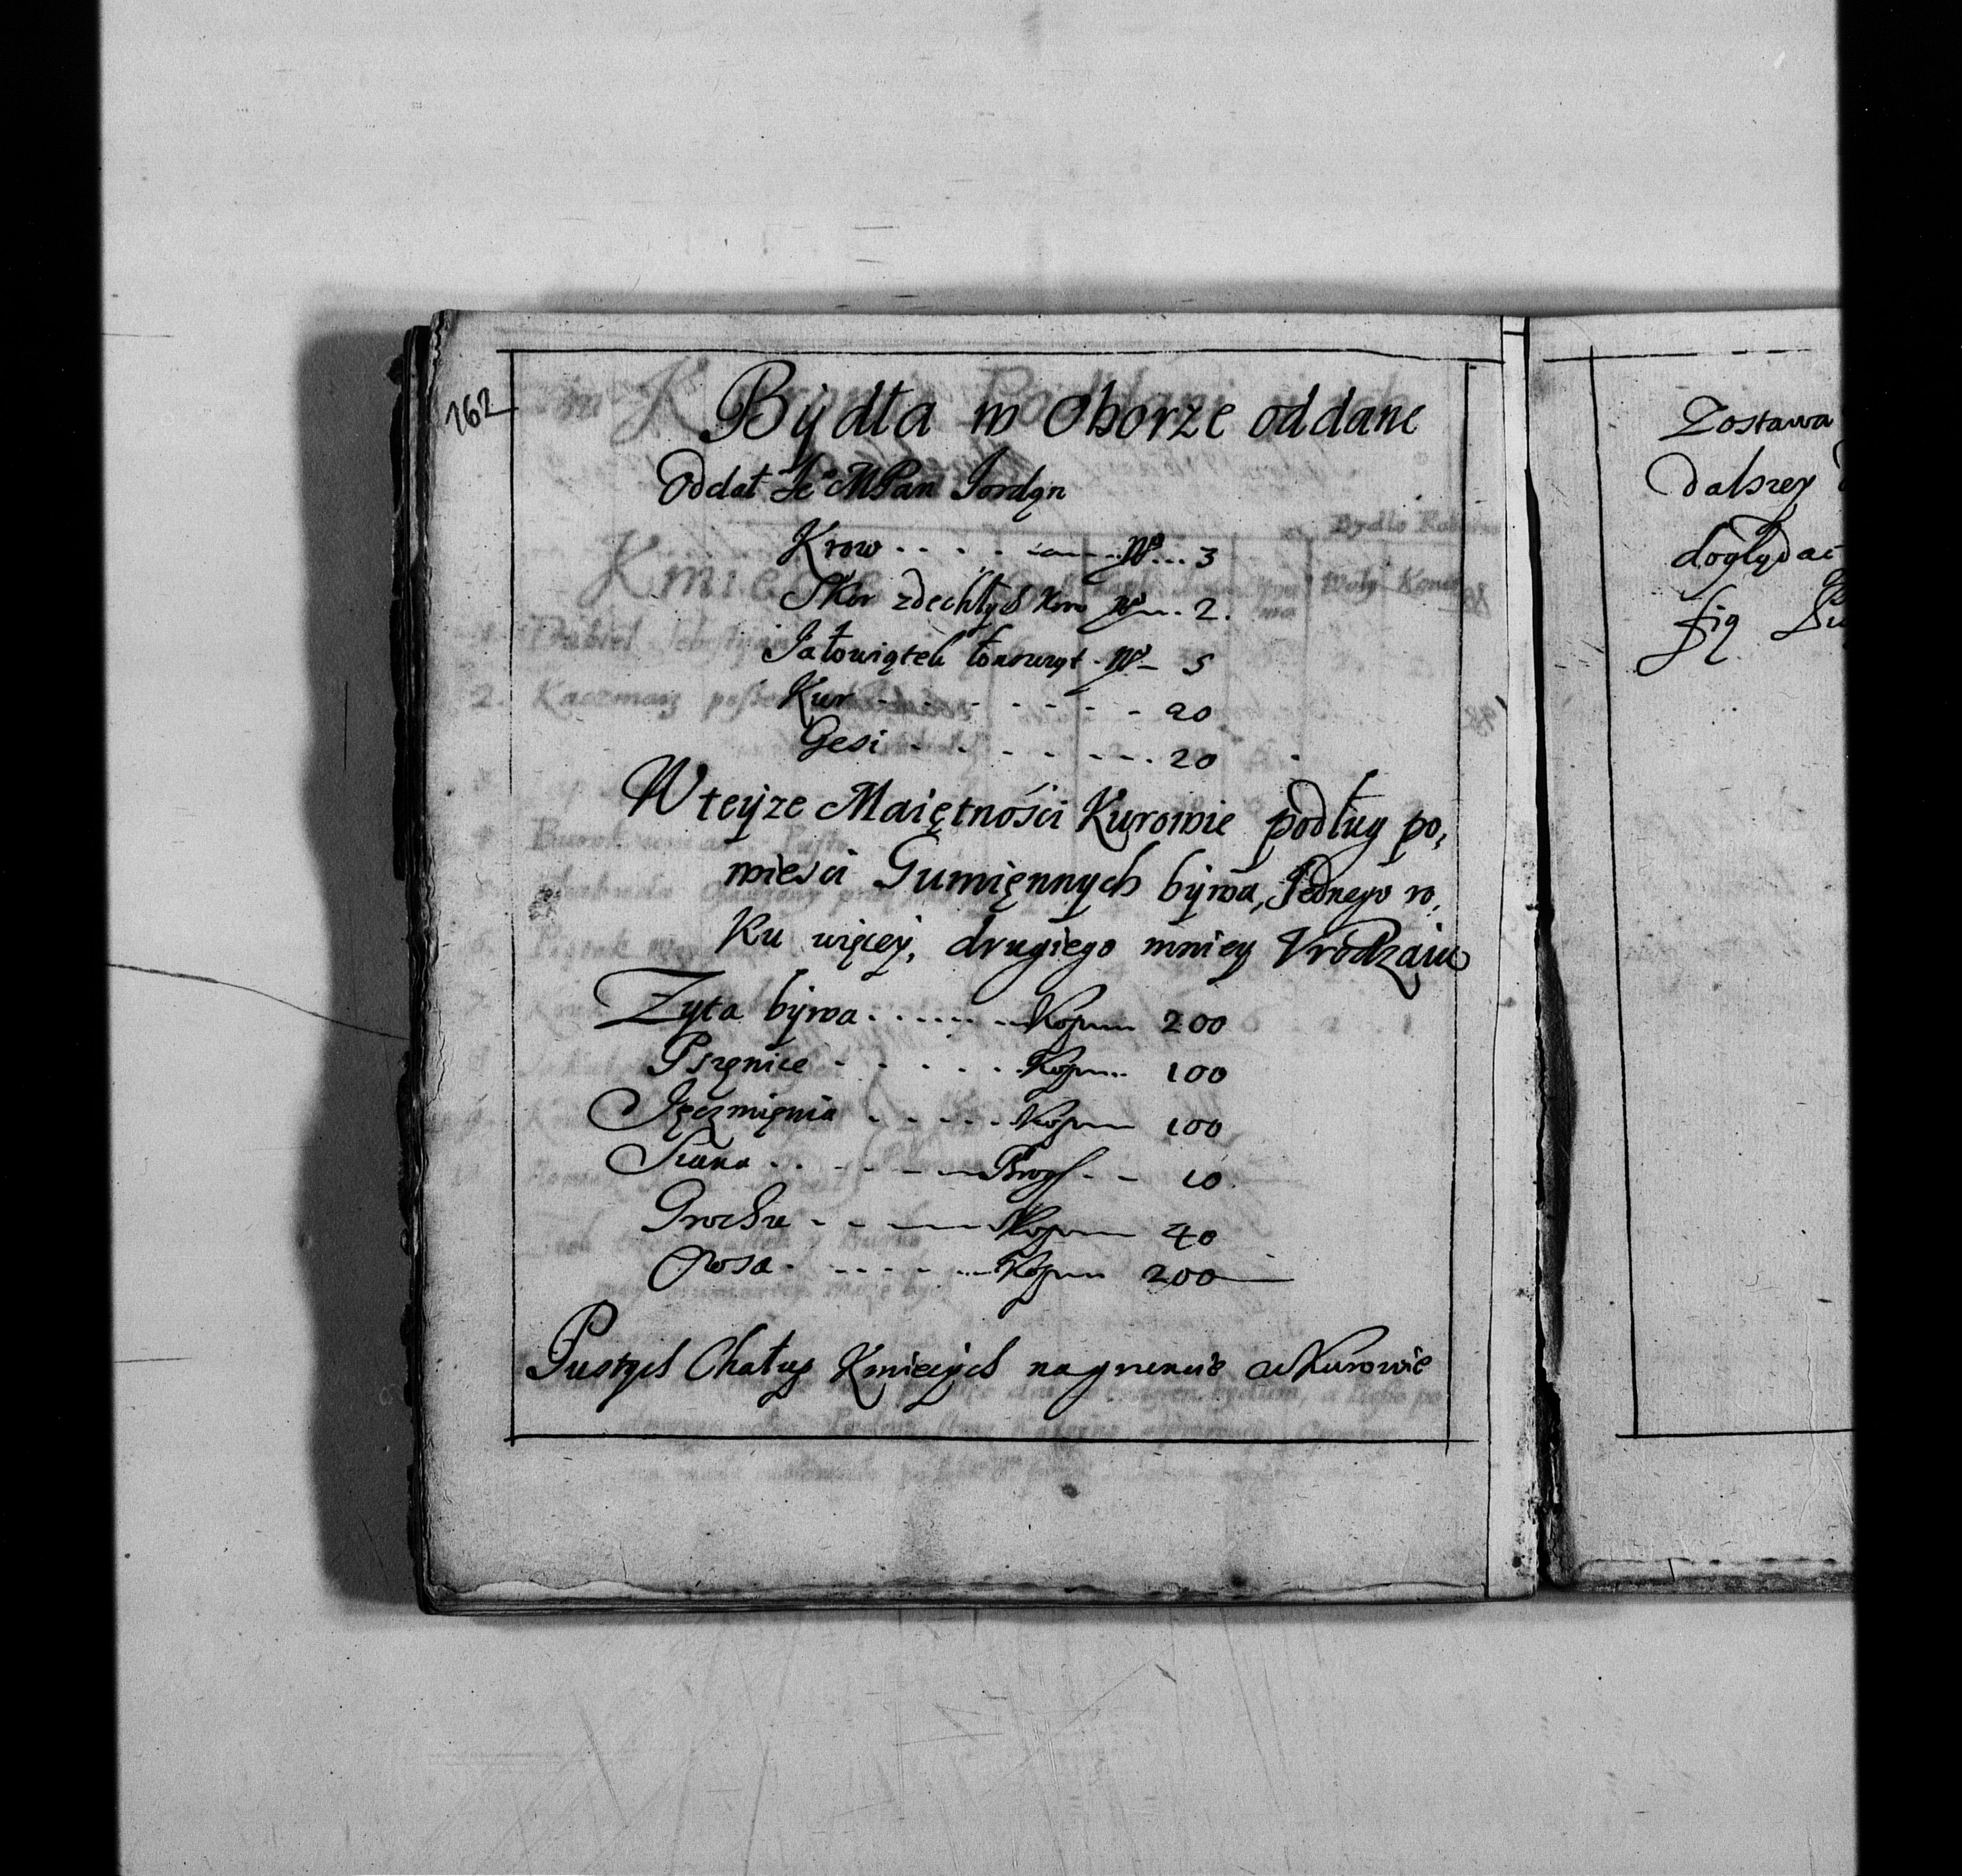 162
Bydła w Oborze oddane
Oddał Je MPan Jordan
Krow . . . . No . . . 3
Skor zdechłych Kro No . . 2.
Jałowiątek No 5
Kur . . . . . . . 20
Gesi . . . . . . . 20
W teyże Maiętności Kurowie podług po,
wieści Gumiennych bywa, Jednego ro,
ku więcey, drugiego mniey Vrodzaiu
Zyta bywa . . . . . . Kop 200
Pszęnice . . . . . Kop 100
Jęczmięnia . . . . . Kop 100
Siana . . . . Brog . . 10
Grochu . . . Kop 40
Prosa . . . . . . Kop 200
Pustych Chałup Kmiecych na gruncie w Kurowie
Zostawa
dalszey
doglądać
się